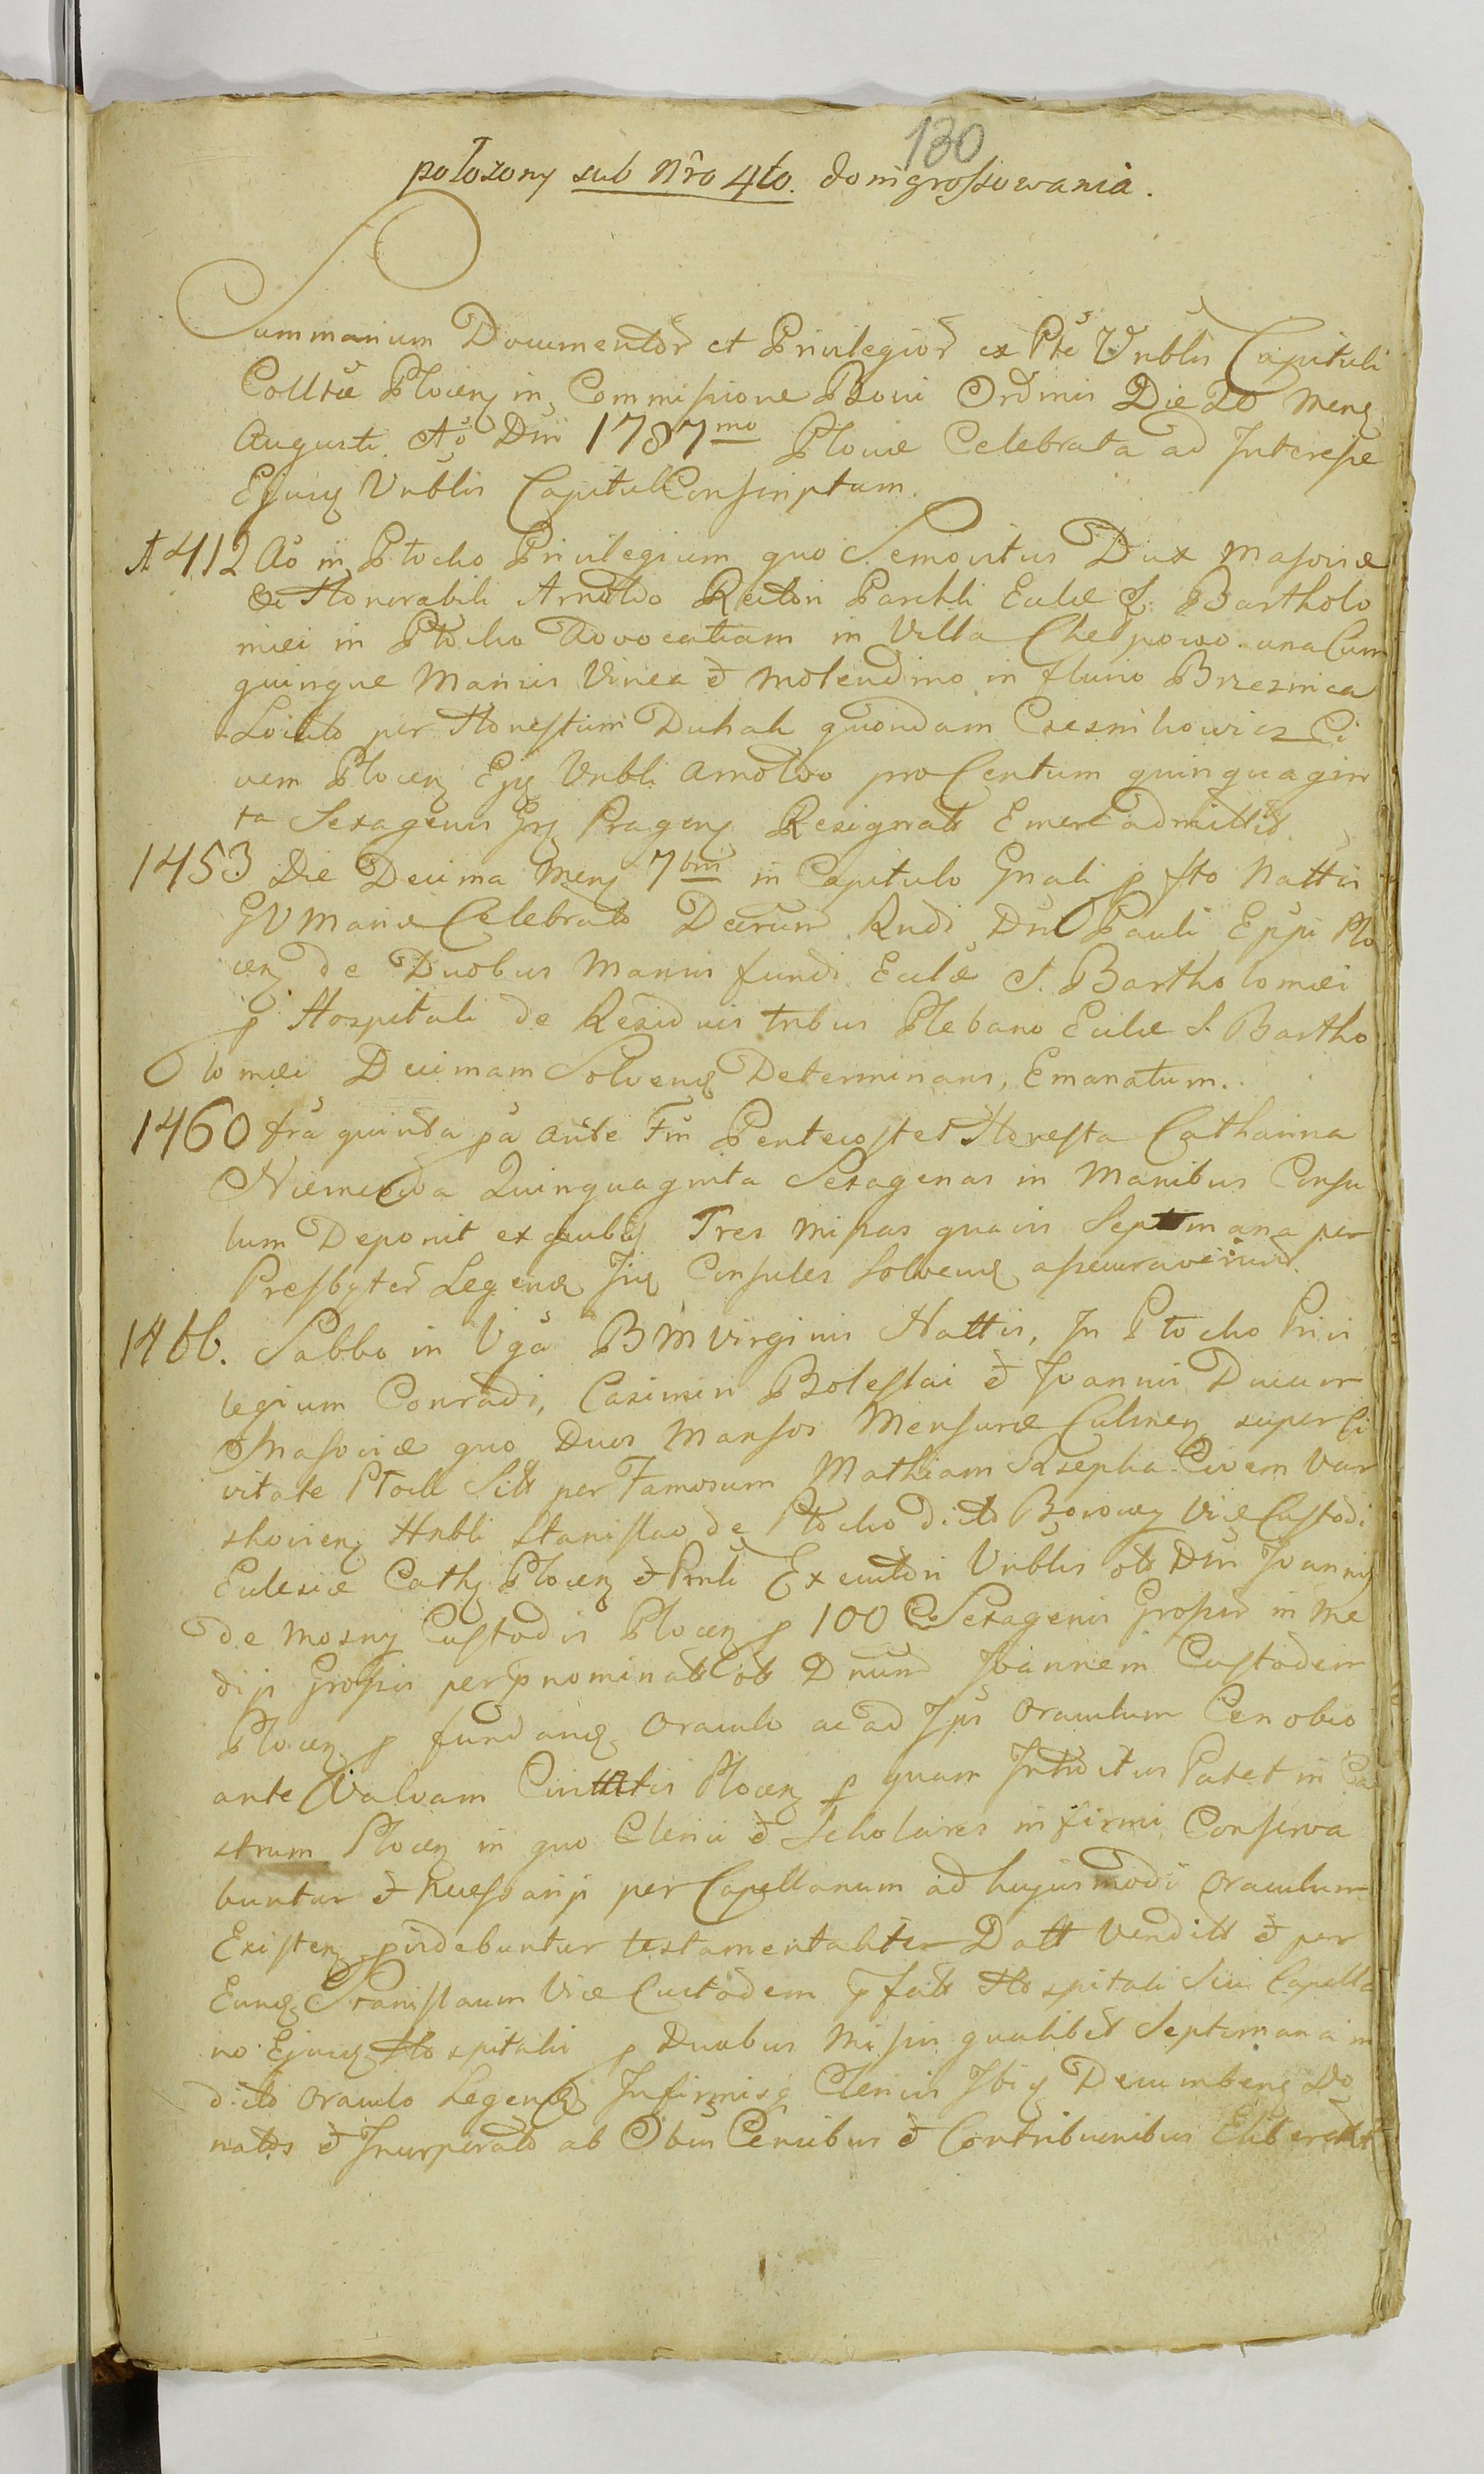 130
położony sub Nro 4to. do ingrossowania.
Summarium Documentor et Privilegior ex Pte Vnblis Capituli
Colltæ Plocen in Commissione Boni Ordinis Die 20 Mens
Augusti Ao Dni 1787mo Plociæ Celebrata ad Interesse
Ejusq Vnblis Capituli Conscriptum.
1412 Ao in Plocko Privilegium quo Semovitus Dux Masoviæ
Honorabili Arnoldo Rectori Parchli Eccliæ S. Bartholo
mæi in Plocko Advocatiam in Villa Chelpowo una Cum
quinque Mansis Vinea et Molendino in fluvio Brzeznica
Locato per Honestum Duhak quondam Czesnikowicz Ci
vem Plocen Ejq Vnbli Arnoldo pro Centum quinquagin
ta Sexagenis Grs Pragens Resignat Emere admittit.
1453 Die Decima Mens 7bris in Capitulo Gnali p fto Nattis
GV Mariæ Celebrato Decretum Rndi Dni Pauli Eppi Plo
cen de Duobus Mansis fundi Eccliæ S. Bartholomæi
p Hospitali de Residuis tribus Plebano Eccliæ S. Bartho
lomæi Decimam Solvend Determinans, Emanatum.
1460 fra quinta pa ante Fm Pentecostes Honesta Catharina
Niemcowa Quinquaginta Sexagenas in Manibus Consu
lum Deponit ex quibq Tres Missas quavis Septimana per
Presbyter Legend Jiq Consules Solvend assecuraverunt.
1466. Sabbo in Vga B M Virginis Nattis, In Plocko Privi
legium Conradi, Casimiri Boleslai et Joannis Ducum
Masoviæ quo Duos Mansos Mensuræ Culmen super Ci
vitate Plock Sitt per Famosum Mathiam Szepka Civem Var
shovien Hnbli Stanislao de Plocko dicto Borowy Vice Custodi
Ecclesiæ Cathq Plocen et Pnli Executori Vnblis olt Dni Joannis
de Mozny Custodis Plocen p 100 Sexagenis Grossor in Me
dijs Grossis per pnominat olt Dnum Joannem Custodem
Plocen p fundand Oraculo ac ad Jps Oraculum Cenobio
ante Valvam Civittis Plocen p quam Introitus Patet in Ca
strum Plocen in quo Clerici et Scholares infirmi Conserva
buntur et Necessarijs per Capellanum ad hujusmodi Oraculum
Existen pvidebuntur testamentaliter Datt Venditt et per
Eund Stanislaum Vice Custodem pfatt Hospitali Seu Capella
no Ejusq Hospitalis p Duabus Missis qualibet Septimana in
dicto Oraculo Legend Infirmisq Clericis Ibiq Decumbens Do
natos et Incorporato ab Obus Censibus et Contribuonibus Eliberat